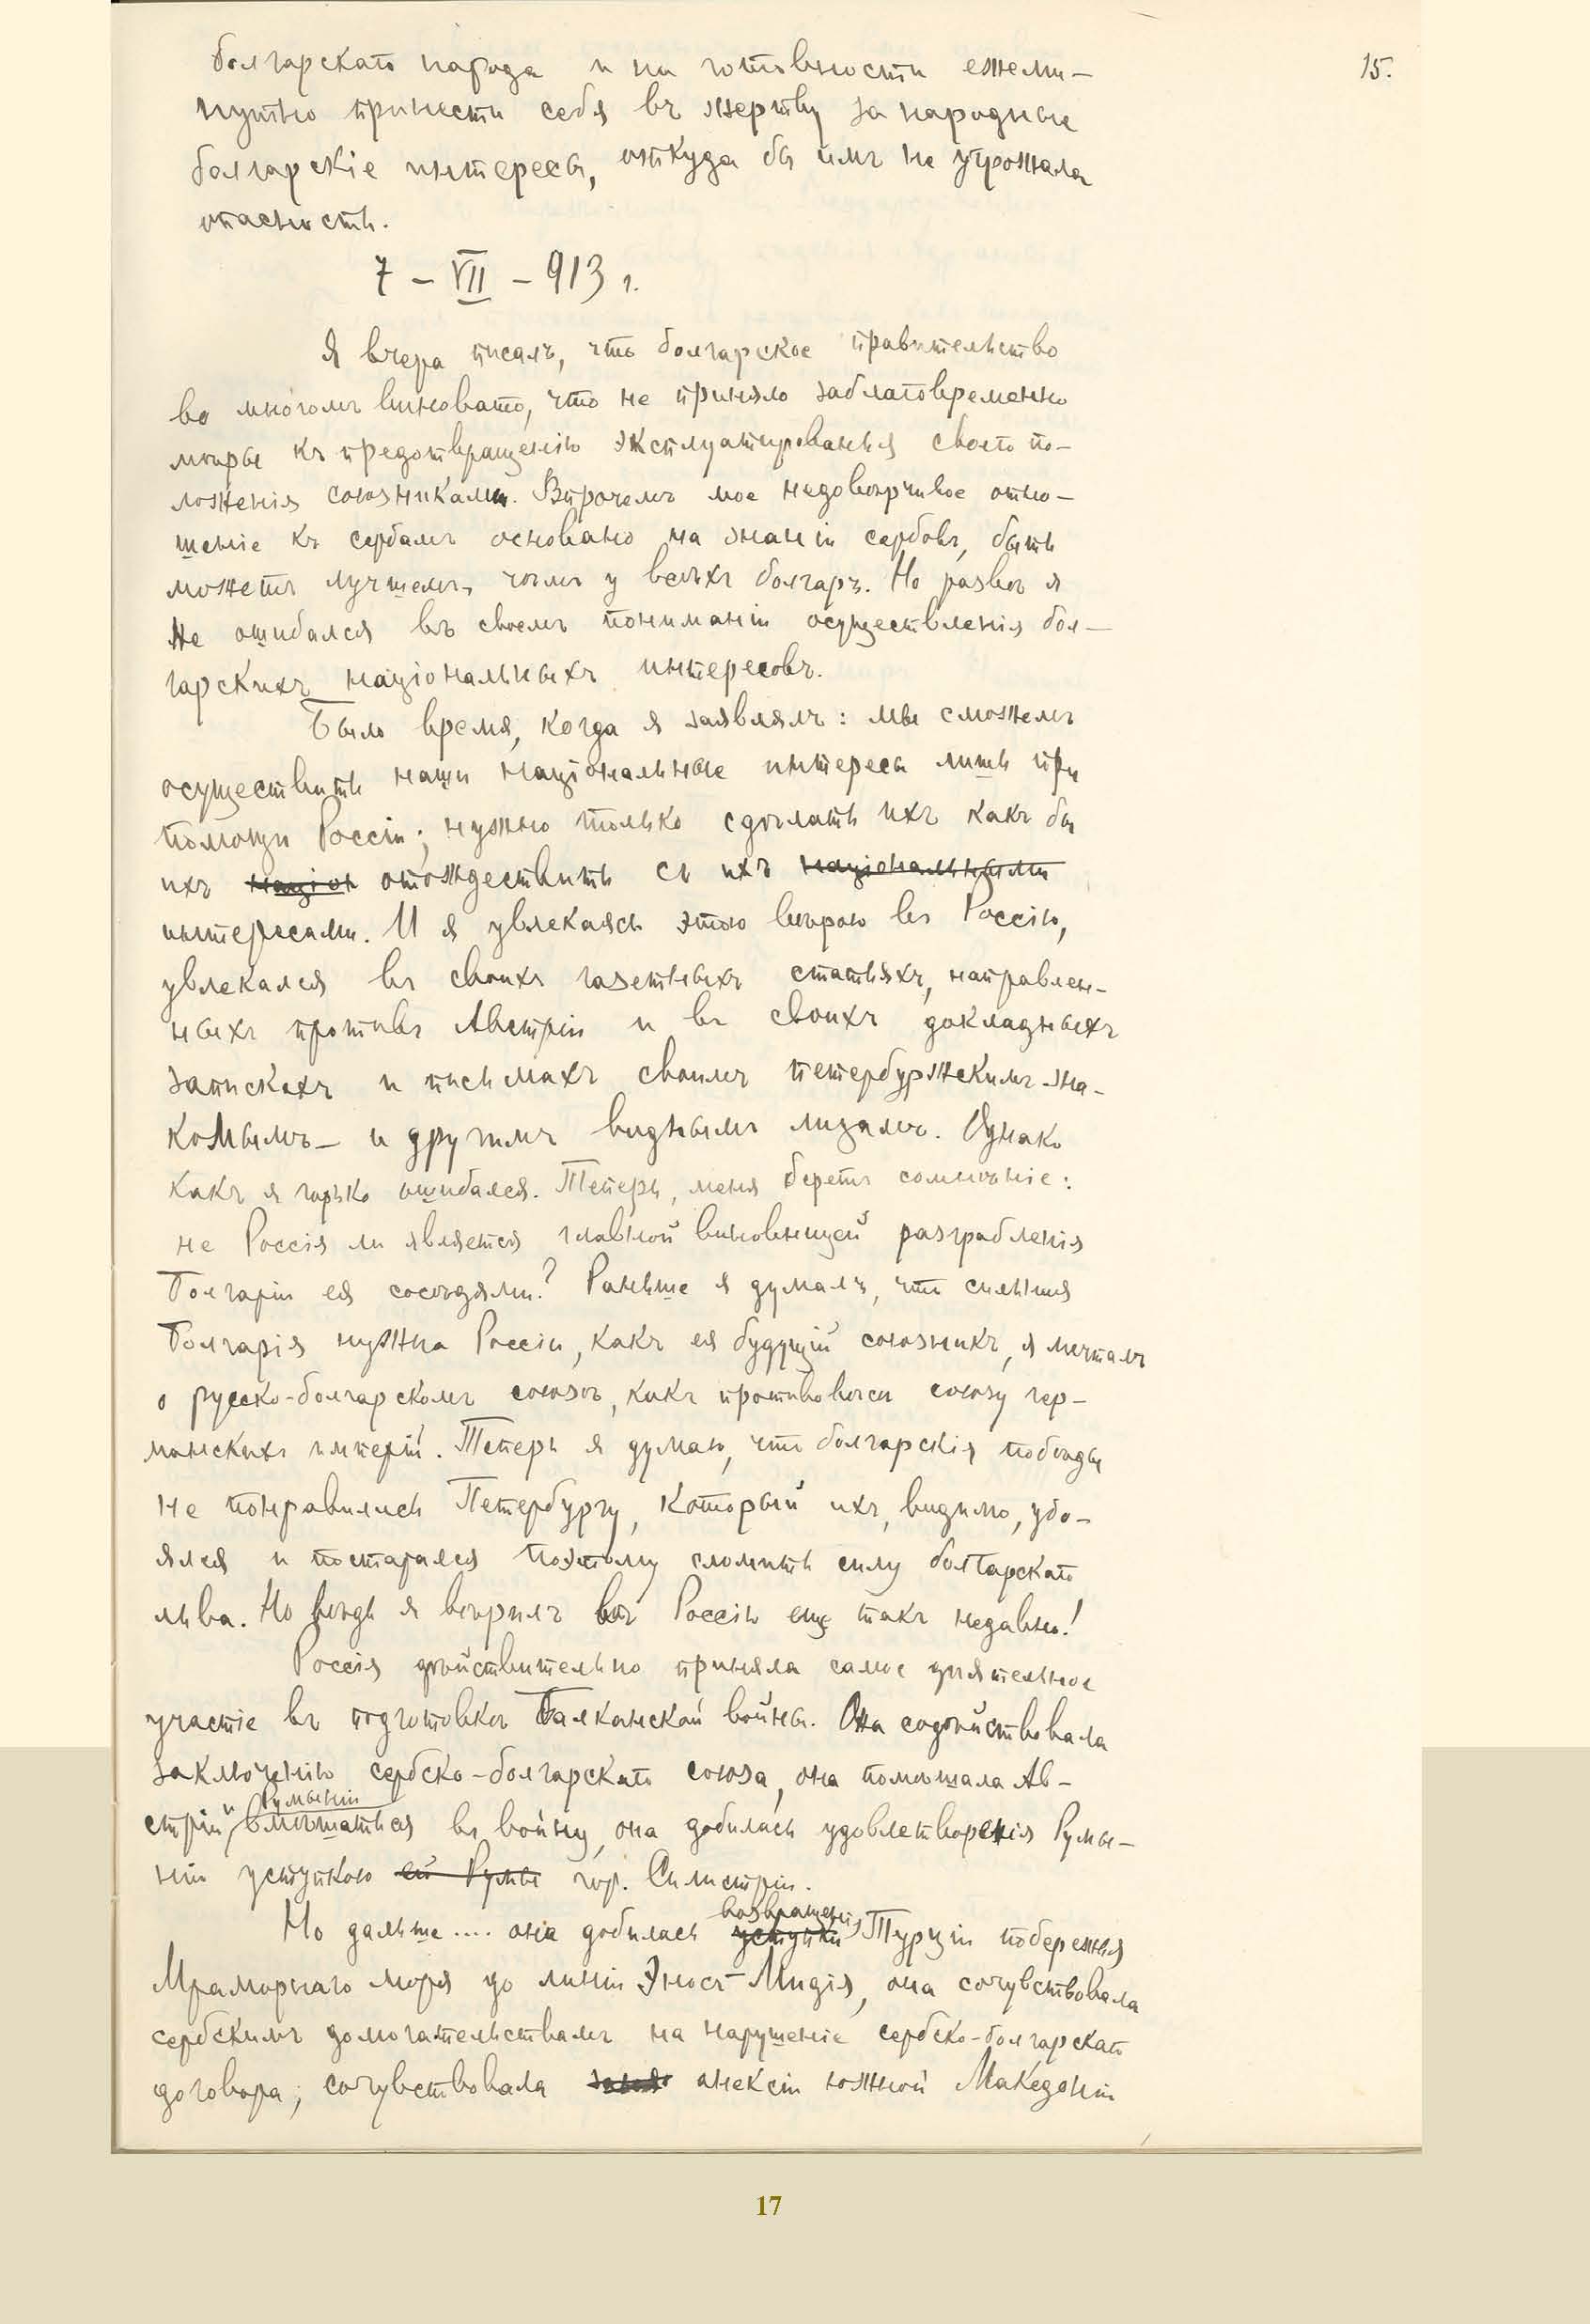 15.
болгарскаго народа и на готовности ежеми-
нутно принести себя въ жертву за народные
болгарскіе интересы, откуда бы имъ не угрожала
опасность.
7 – VII – 913 г.
Я вчера писалъ, что болгарское правительство
во многомъ виновато, что не приняло заблаговременно
мѣры къ предотвращенію эксплуатированія своего по-
ложенія союзниками. Впрочемъ мое недовѣрчивое отно-
шеніе къ сербамъ основано на знаніи сербовъ, быть
можетъ лучшемъ, чѣмъ у всѣхъ болгаръ. Но развѣ я
не ошибался въ своемъ пониманіи осуществленія бол-
гарскихъ національныхъ интересовъ.
Было время, когда я заявлялъ: мы сможемъ
осуществить наши національные интересы лишь при
помощи Россіи; нужно только сдѣлать ихъ какъ бы
ихъ націон отождествить съ ихъ національными
интересами. И я увлекаясь этою вѣрою въ Россію,
увлекался въ своихъ газетныхъ статьяхъ, направлен-
ныхъ противъ Австріи и въ своихъ докладныхъ
запискахъ и письмахъ своимъ петербуржскимъ зна-
комымъ – и другимъ виднымъ лицамъ. Однако
какъ я горько ошибался. Теперь, меня беретъ сомнѣніе:
не Россія ли является главной виновницей разграбленія
Болгаріи ея сосѣдями? Раньше я думалъ, что сильная
Болгарія нужна Россіи, какъ ея будущій союзникъ, я мечталъ
о русско-болгарскомъ союзѣ, какъ противовѣси союзу гер-
манскихъ имперій. Теперь я думаю, что болгарскія побѣды
не понравились Петербургу, который ихъ, видимо, убо-
ялся и постарался поэтому сломить силу болгарскаго
льва. Но вѣдь я вѣрилъ въ Россію еще такъ недавно!
Россія дѣйствительно приняла самое дѣятельное
участіе въ подготовкѣ Балканской войны. Она содѣйствовала
заключенію сербско-болгарскаго союза, она помѣшала Ав-
стріи и Румыніи вмѣшаться въ войну, она добилась удовлетворенія Румы-
ніи уступкою ей Румы гор. Силистріи.
Но дальше.... она добилась уступки возвращенія Турціи побережья
Мраморнаго моря до линіи Эносъ–Мидія, она сочувствовала
сербскимъ домогательствамъ на нарушеніе сербско-болгарскаго
договора; сочувствовала анексіи южной Македоніи
17